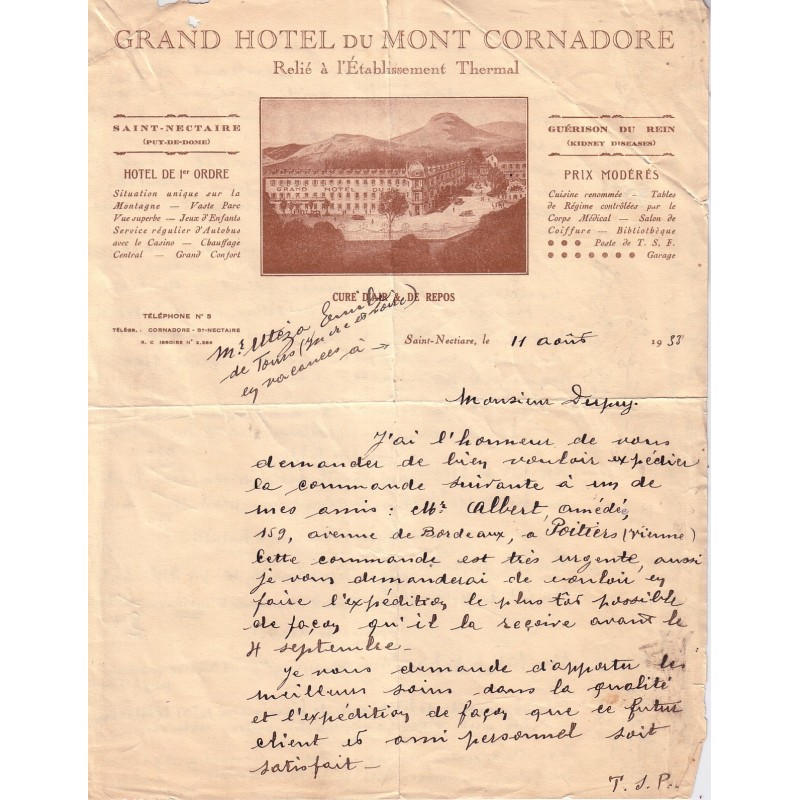 GRAND HOTEL DU MONT CORNADORE
Relié à l'Établissement Thermal
SAINT-NECTAIRE
(PUY-DE-DOME)
HOTEL DE 1er ORDRE
Situation unique sur la
Montagne – Vaste Parc
Vue superbe – Jeux d'Enfants
Service régulier d'Autobus
avec le Casino – Chauffage
Central – Grand Confort
GRAND HOTEL DU
GUÉRISON DU REIN
(KIDNEY DISEASES)
PRIX MODÉRÉS
Cuisine renommée – Tables
de Régime contrôlées par le
Corps Médical – Salon de
Coiffure – Bibliothèque
Poste de T. S. F.
Garage
CURE D'AIR & DE REPOS
TÉLÉPHONE N° 5
TÉLÉGR. : CORNADORE - ST-NECTAIRE
R. C ISSOIRE N° 2.384
Mr Utéza
de Tours (Indre et Loire)
en vacances à →
Saint-Nectiare, le 11 août 1933
Monsieur Dupuy.
J'ai l'honneur de vous
demander de bien vouloir expédier
la commande suivante à un de
mes amis : Mr Albert, amédée,
159, avenue de Bordeaux, à Poitiers (Vienne)
Cette commande est très urgente, aussi
je vous demanderai de vouloir en
faire l'expédition le plus tôt possible
de façon qu'il la reçoive avant le
4 septembre –
Je vous demande d'apporter les
meilleurs soins dans la qualité
et l'expédition de façon que ce futur
client et ami personnel soit
satisfait –
T. S. P.